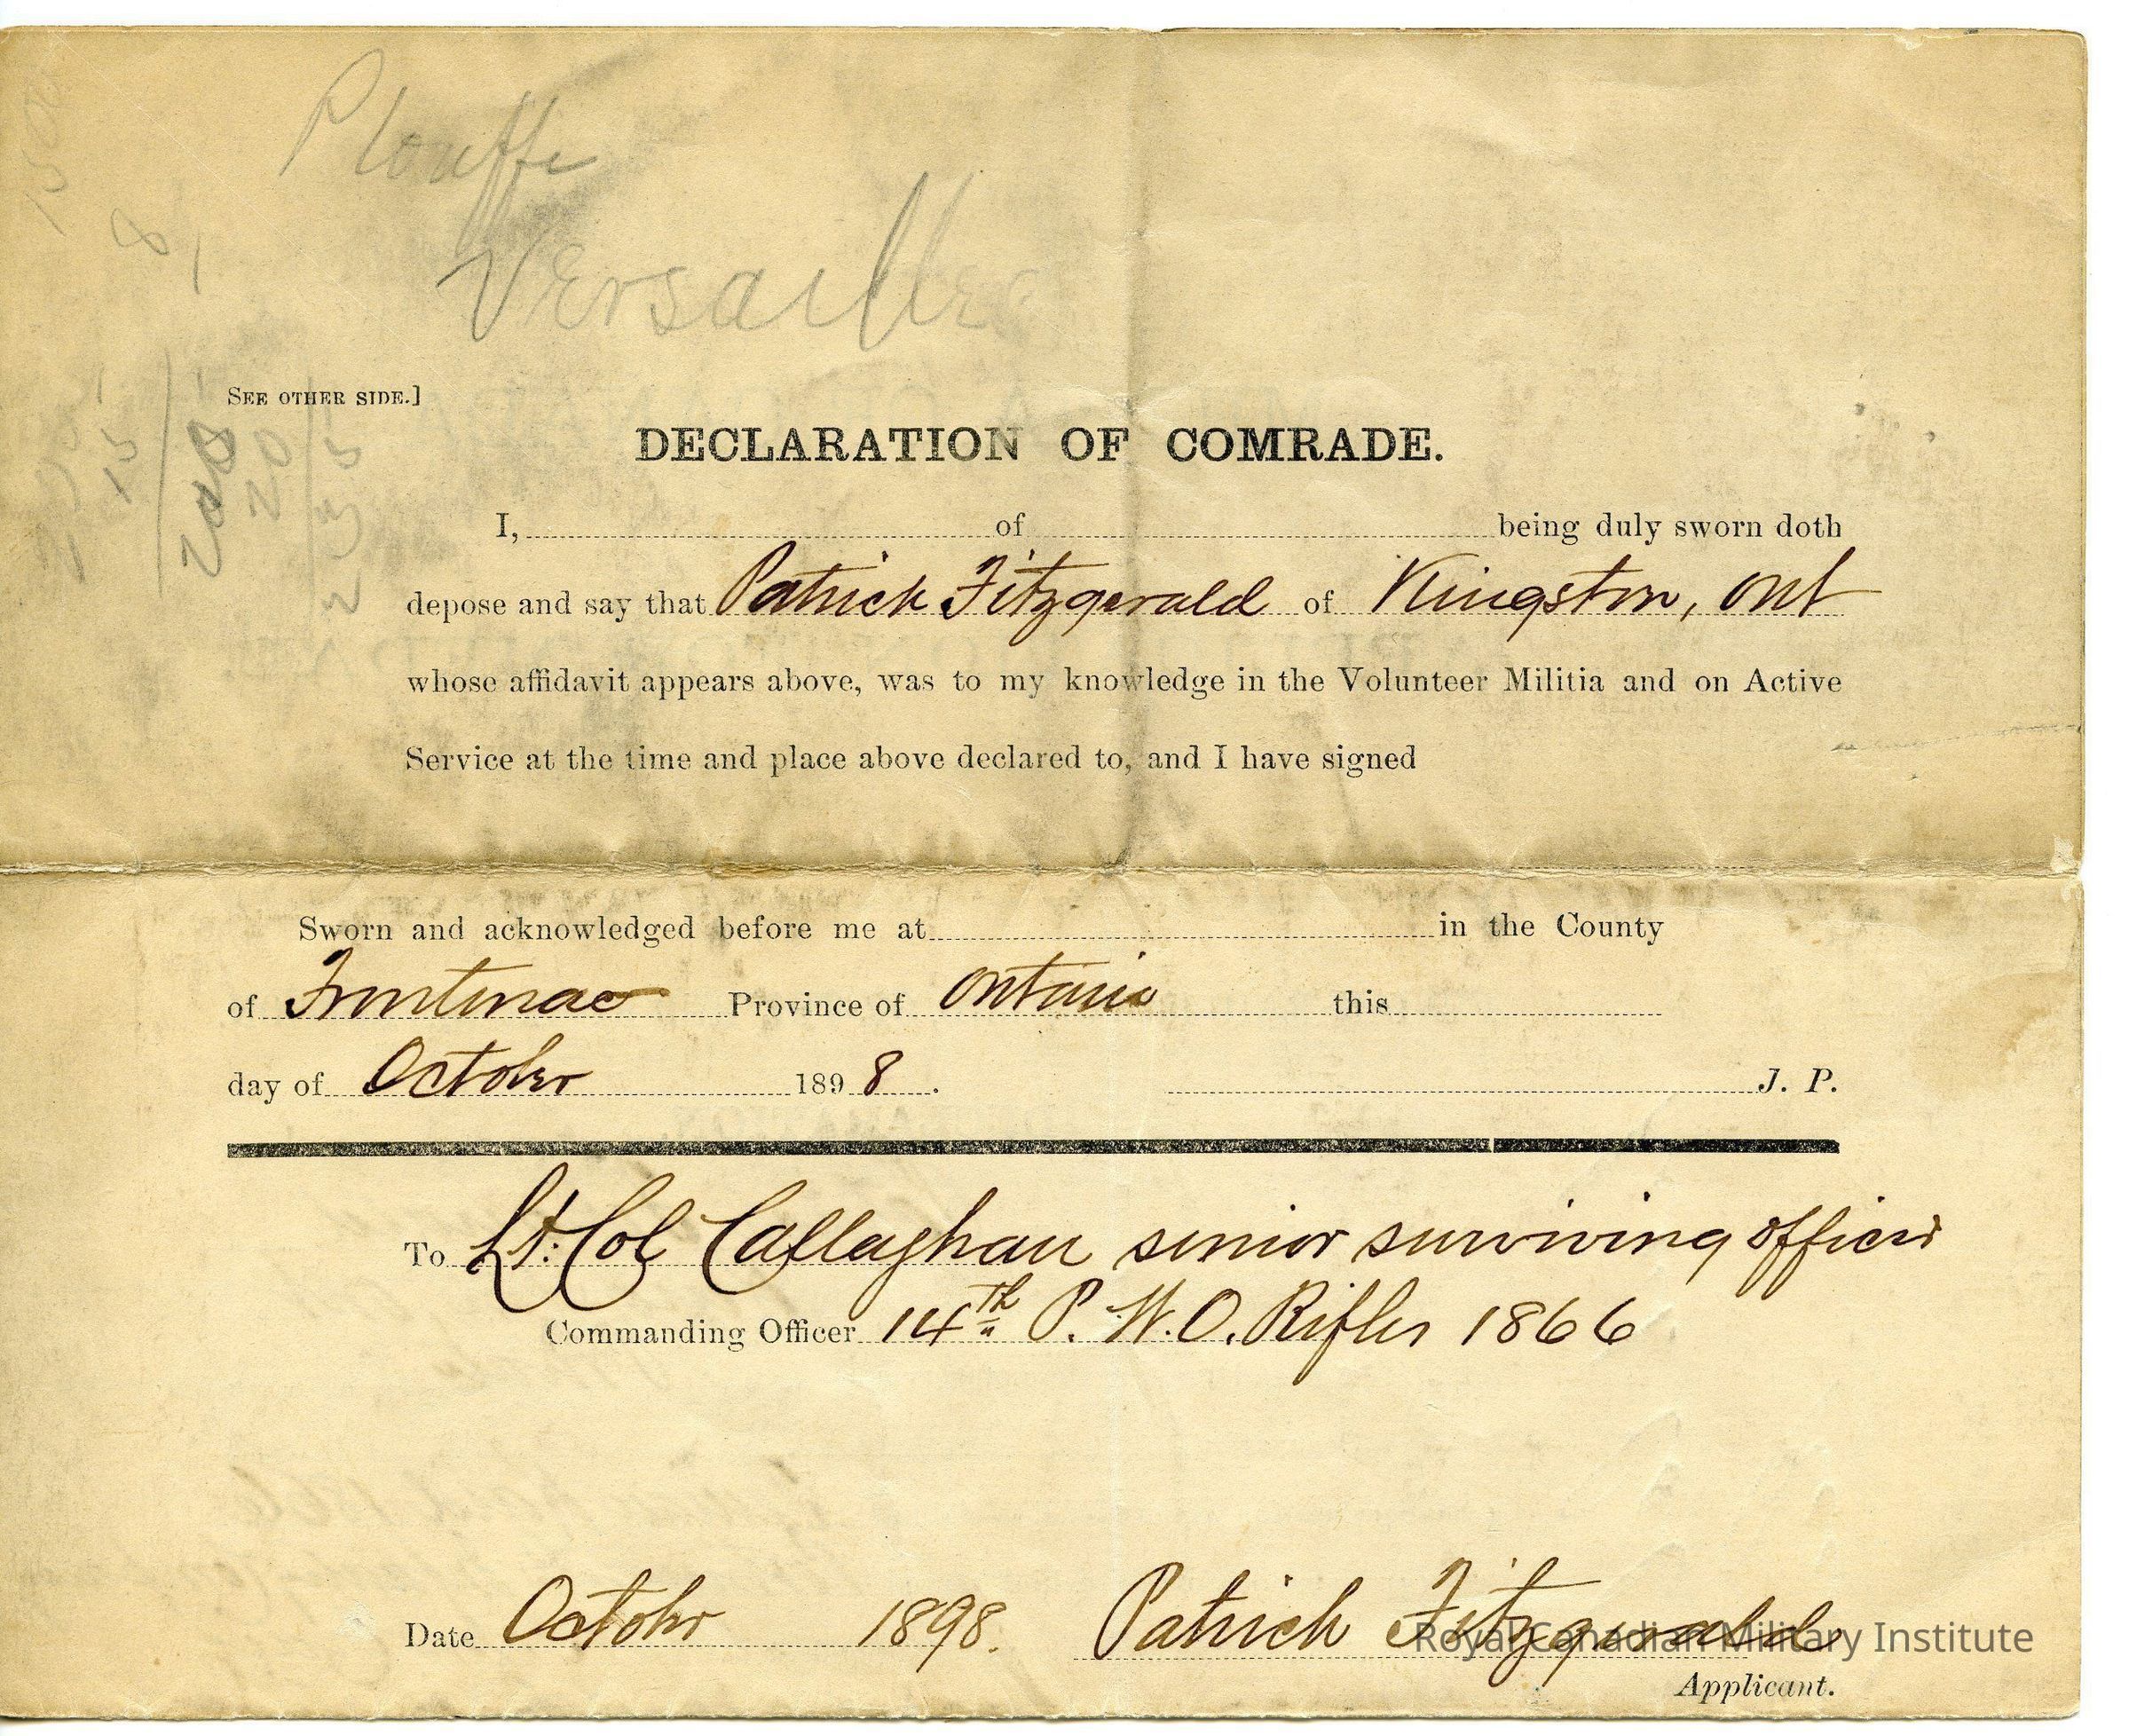 Plouffe
Versailles
SEE OTHER SIDE.]
DECLARATION OF COMRADE.
I, of being duly sworn doth
depose and say that Patrick Fitzgerald of Kingston, Ont
whose affidavit appears above, was to my knowledge in the Volunteer Militia and on Active
Service at the time and place above declared to, and I have signed
Sworn and acknowledged before me at in the County
of Frontenac Province of Ontario this
day of October 1898. J. P.
To Lt: Col Callaghan senior surviving officer
Commanding Officer 14th P. W. O. Rifles 1866
Date October 1898. Patrick Fitzgerald
Royal Canadian Military Institute
Applicant.